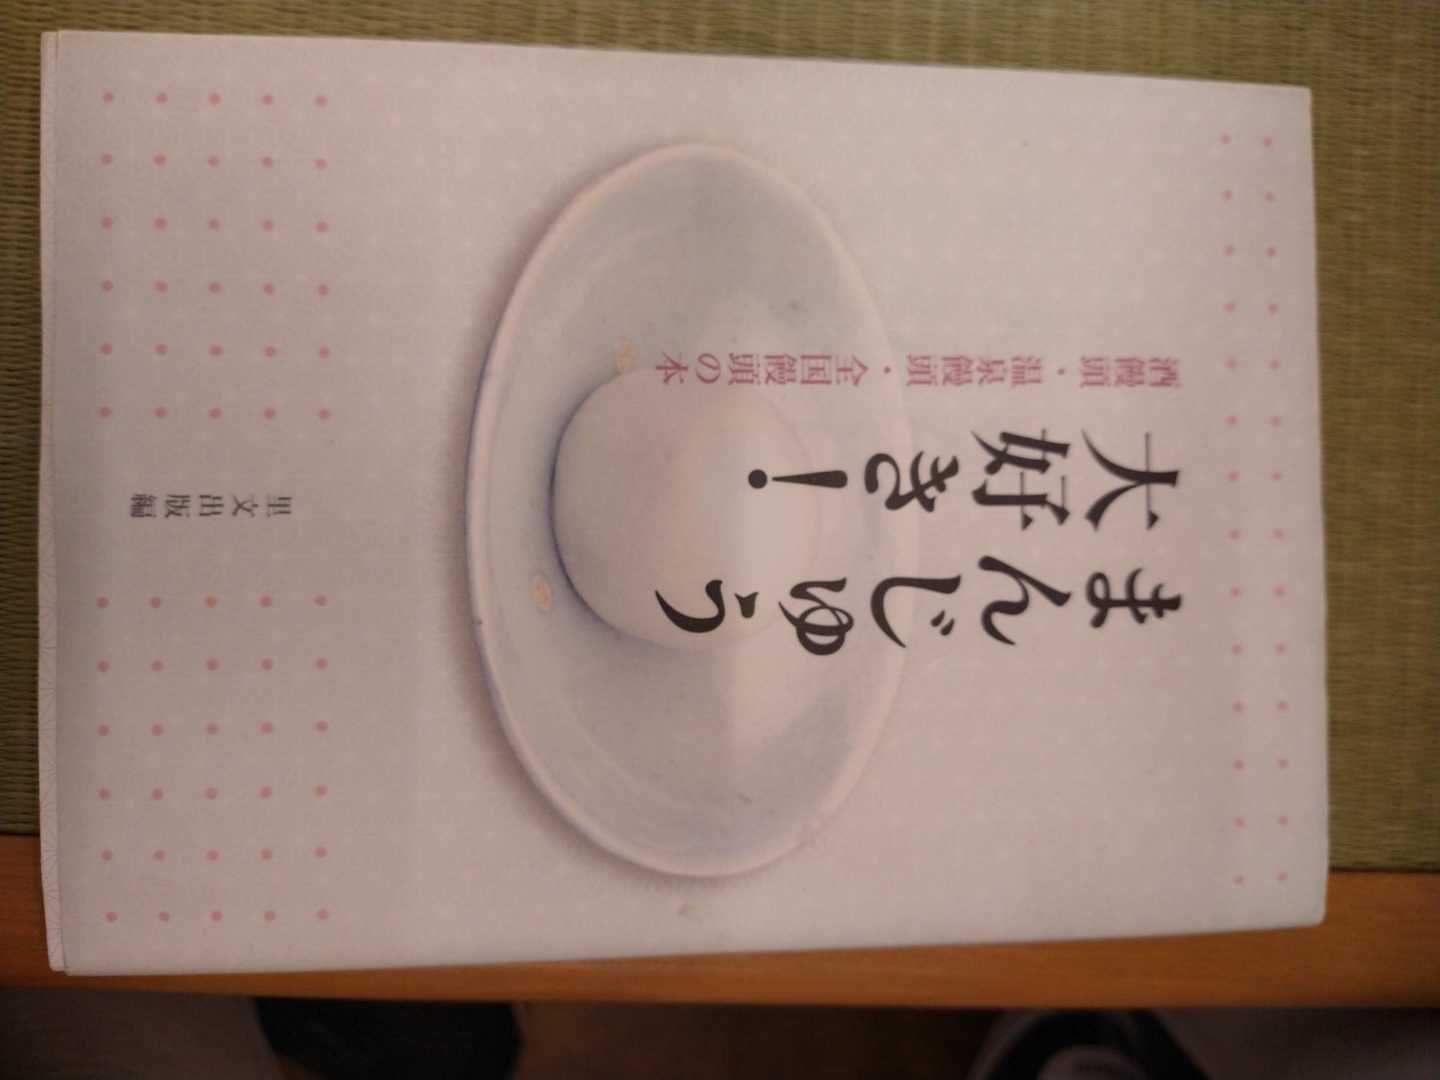 まんじゅう
大好き!
酒饅頭・温泉饅頭・全国饅頭の本
里文出版編